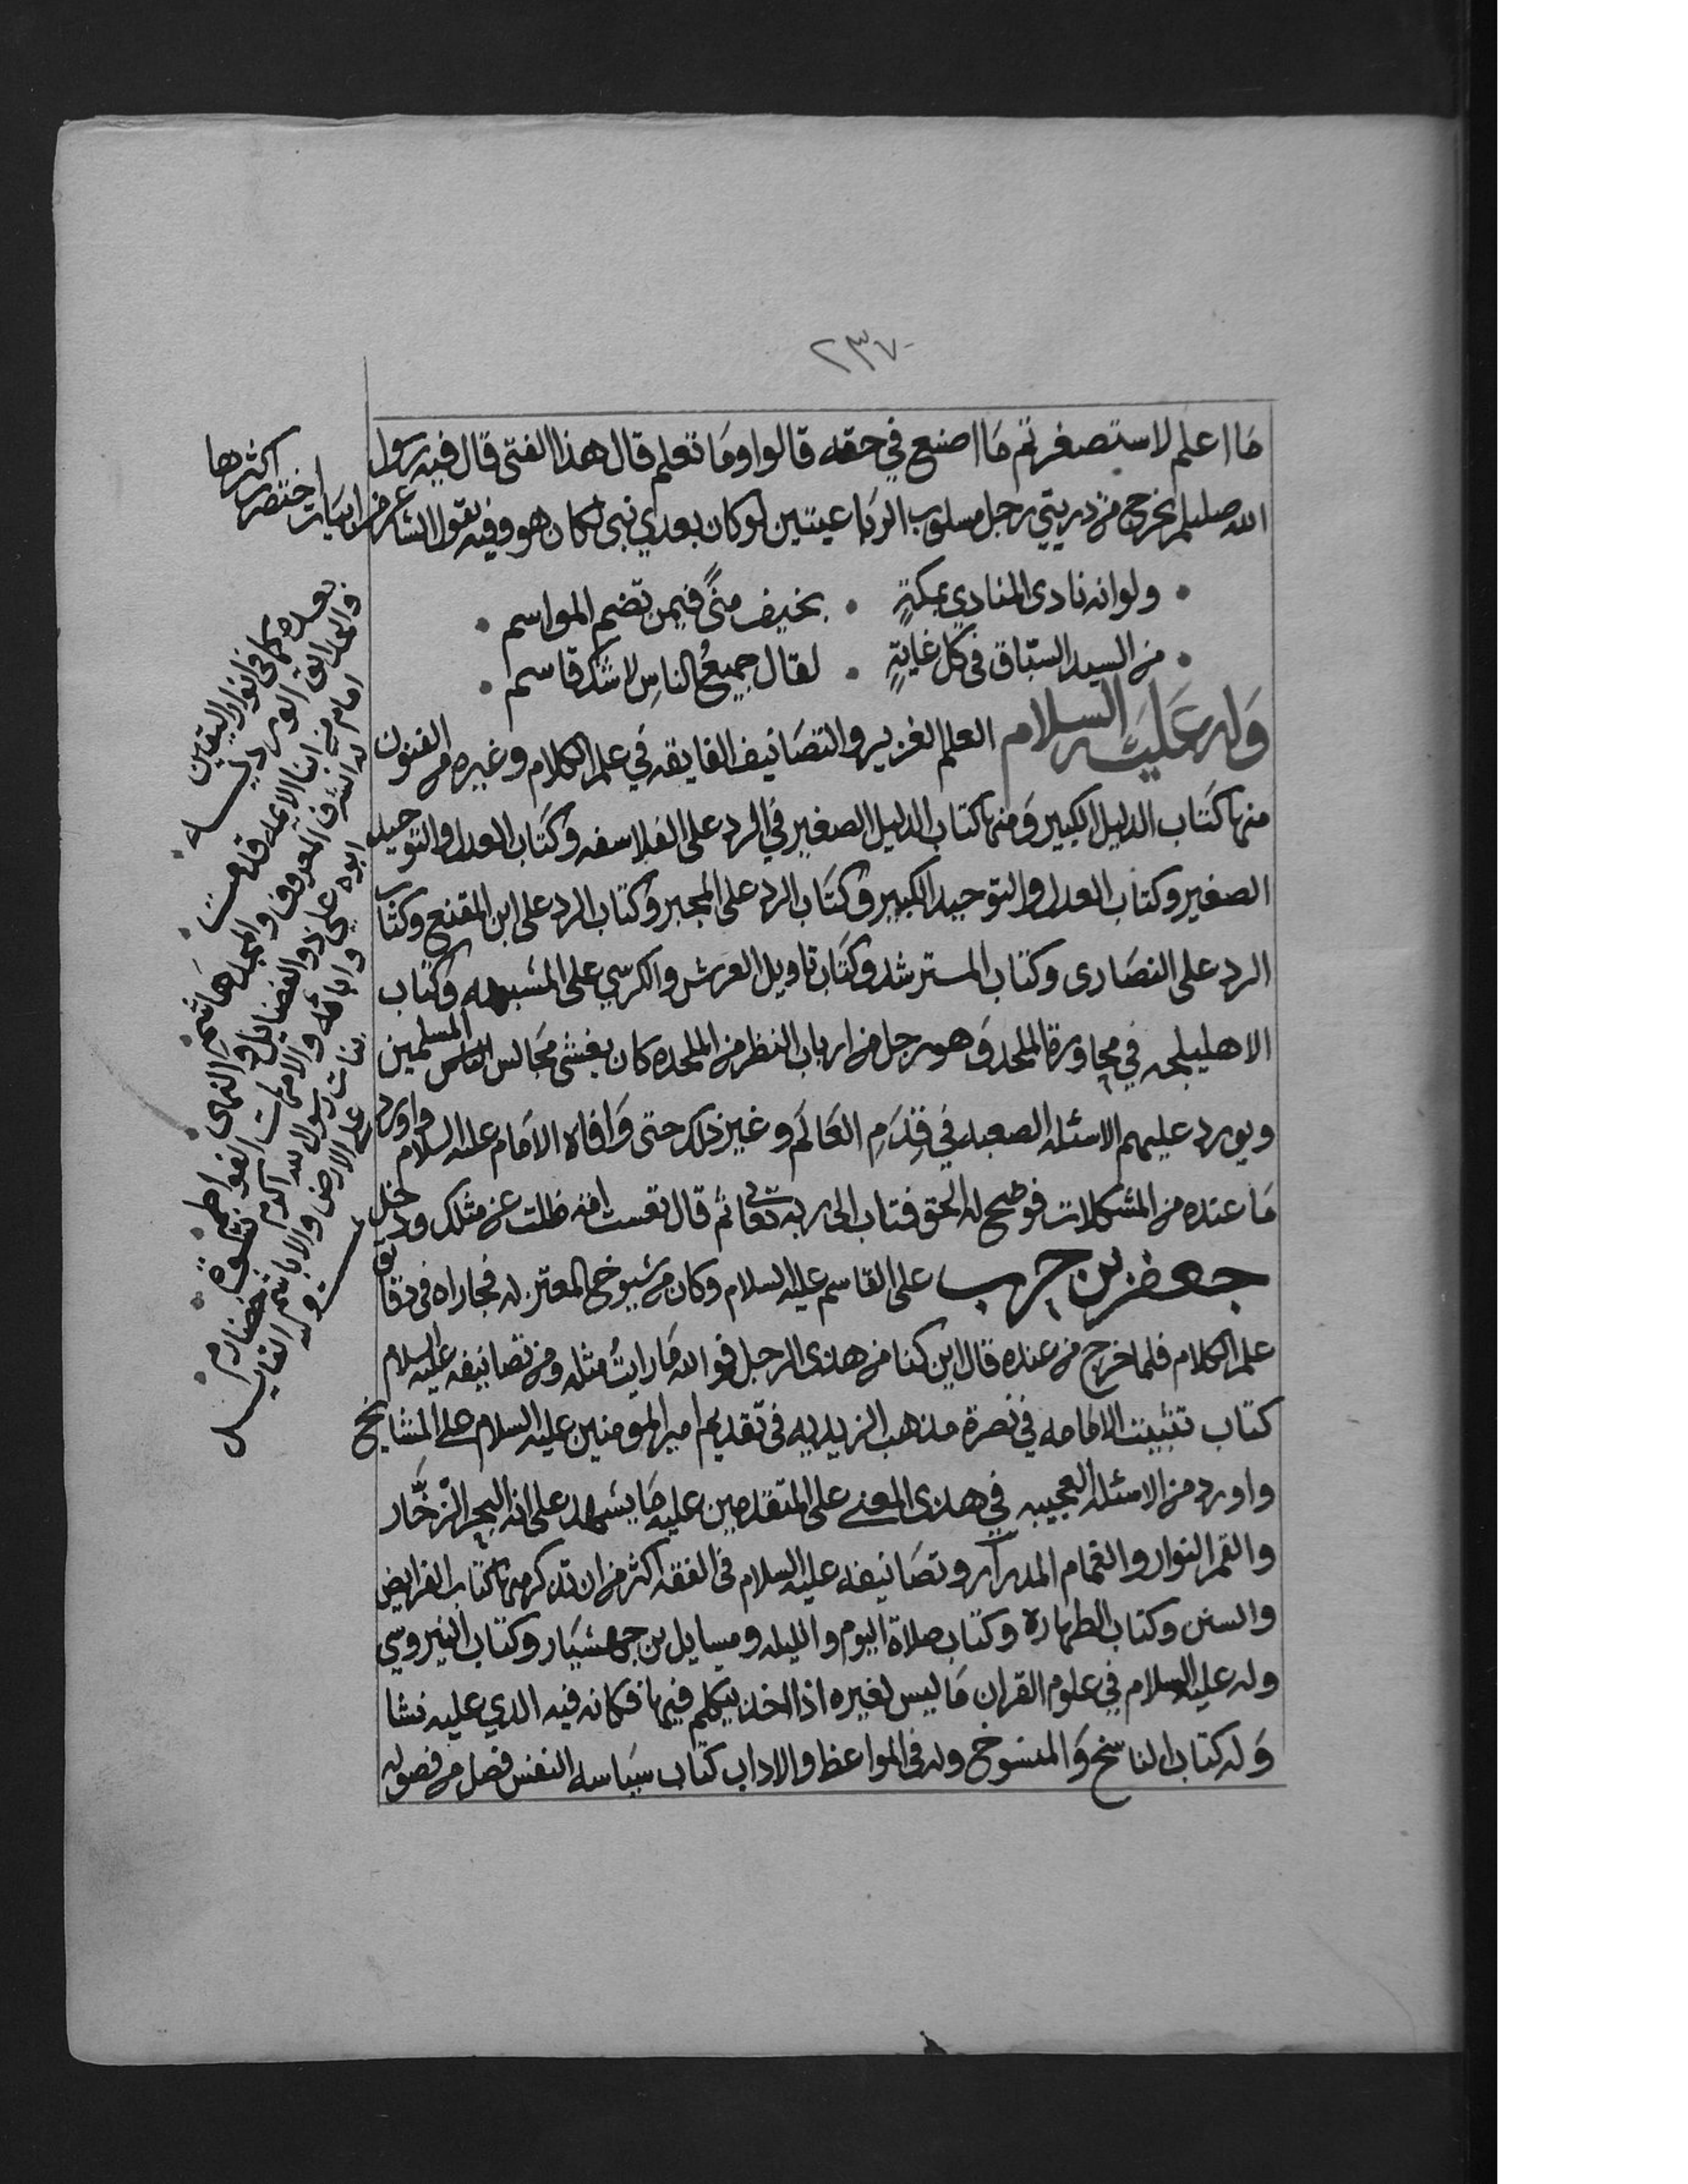 ٢٣٧
ما اعلم لاستصغرتم ما اصنع في حقه قالوا وما تعلم قال هذا الفتى قال فيه رسول
الله صللم يخرج من ذريتي رجل مسلوب الرباعيتين لو كان بعدي نبي لكان هو وفيه يقول الشاعر من ابيات اختصر اكثرها
ولو انه نادى المنادي بمكةٍ • بخيف منىً فيمن تضم المواسم •
من السيد السباق في كل غايةٍ • لقال جميعُ الناسِ لا شك قاسم •
وله عليه السلام العلم الغزير والتصانيف الفايقه في علم الكلام وغيره من الفنون
منها كتاب الدليل الكبير ومنها كتاب الدليل الصغير في الرد على الفلاسفه وكتاب العدل والتوحيد
الصغير وكتاب العدل والتوحيد الكبير وكتاب الرد على المجبر وكتاب الرد على ابن المقنع وكتاب
الرد على النصارى وكتاب المسترشد وكتاب تاويل العرش والكرسي على المشبهه وكتاب
الاهليلجه في محاورة الملحد وهو رجل من ارباب النظر من الملحده كان يغشى مجالس المسلمين
ويورد عليهم الاسئله الصعبه في قِدَمِ العَالَم وغير ذلك حتى وافاه الامام عليه السلام واورد
ما عنده من المشكلات فوضح له الحق فتاب الى ربه تعالى ثم قال تعست امة ضلت عن مثلك ودخل
جعفر بن حرب على القاسم عليه السلام وكان من شيوخ المعتزله فجاراه في دقايق
علم الكلام فلما خرج من عنده قال اين كنا من هذى الرجل فوالله ما رايتُ مثله ومن تصانيفه عليه السلام
كتاب تثبيت الامامه في نصرة مذهب الزيديه في تقديم امير المومنين عليه السلام على المشايخ
واورد من الاسئله العجيبه في هذى المعنى على المتقدمين عليه ما يشهد على انه البحر الزخّار
والقمر النوار والغمام المدرار وتصانيفه عليه السلام في الفقه اكثر من ان تذكر منها كتاب الفرايض
والسنن وكتاب الطهارة وكتاب صلاة اليوم والليله ومسايل بن جهشيار وكتاب النيروسي
وله عليه السلام في علوم القران ما ليس لغيره اذا اخذ يتكلم فيها فكانه فيه الذي عليه نشا
وله كتاب الناسخ والمنسوخ وله في المواعظ والاداب كتاب سياسه النفس فصل من فصوله
بعده كما في انوار اليقين
والحدايق الورديـــه •
امام من ابنا الايمه قدمت •
له الشرف المعروف والمجد هاشم •
ابوه علي ذو الفضايل والنهى •
واباؤه والامهات الفواطم •
بنات رسول الله اكرم نسوة •
على الارض والاباء شم خضارم •